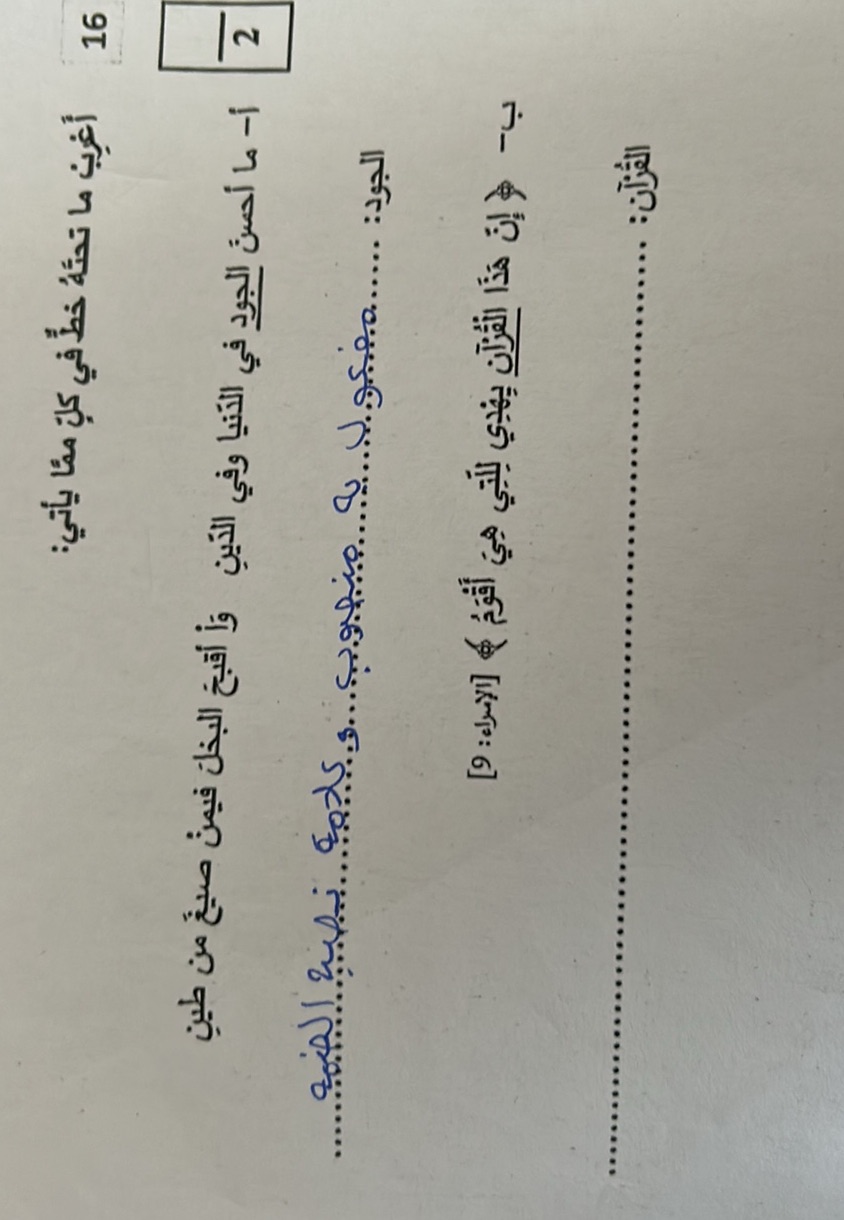 16 أَعْرِبْ ما تحتَهُ خطٌّ في كلٍّ ممّا يأتي:
2
أ- ما أحسنَ الجود في الدّنيا وفي الدّينِ وأ أقبحَ البخلَ فيمنْ صيغَ من طينِ
الجود: ......مفعول به منصوب و علامة نصبه الفتحة......
ب- ﴿ إِنّ هَذَا الْقُرْآن يِهْدِي لِلَّتِي هِيَ أَقْوَمُ ﴾ [الإسراء: 9]
القُرْآن: ................................................